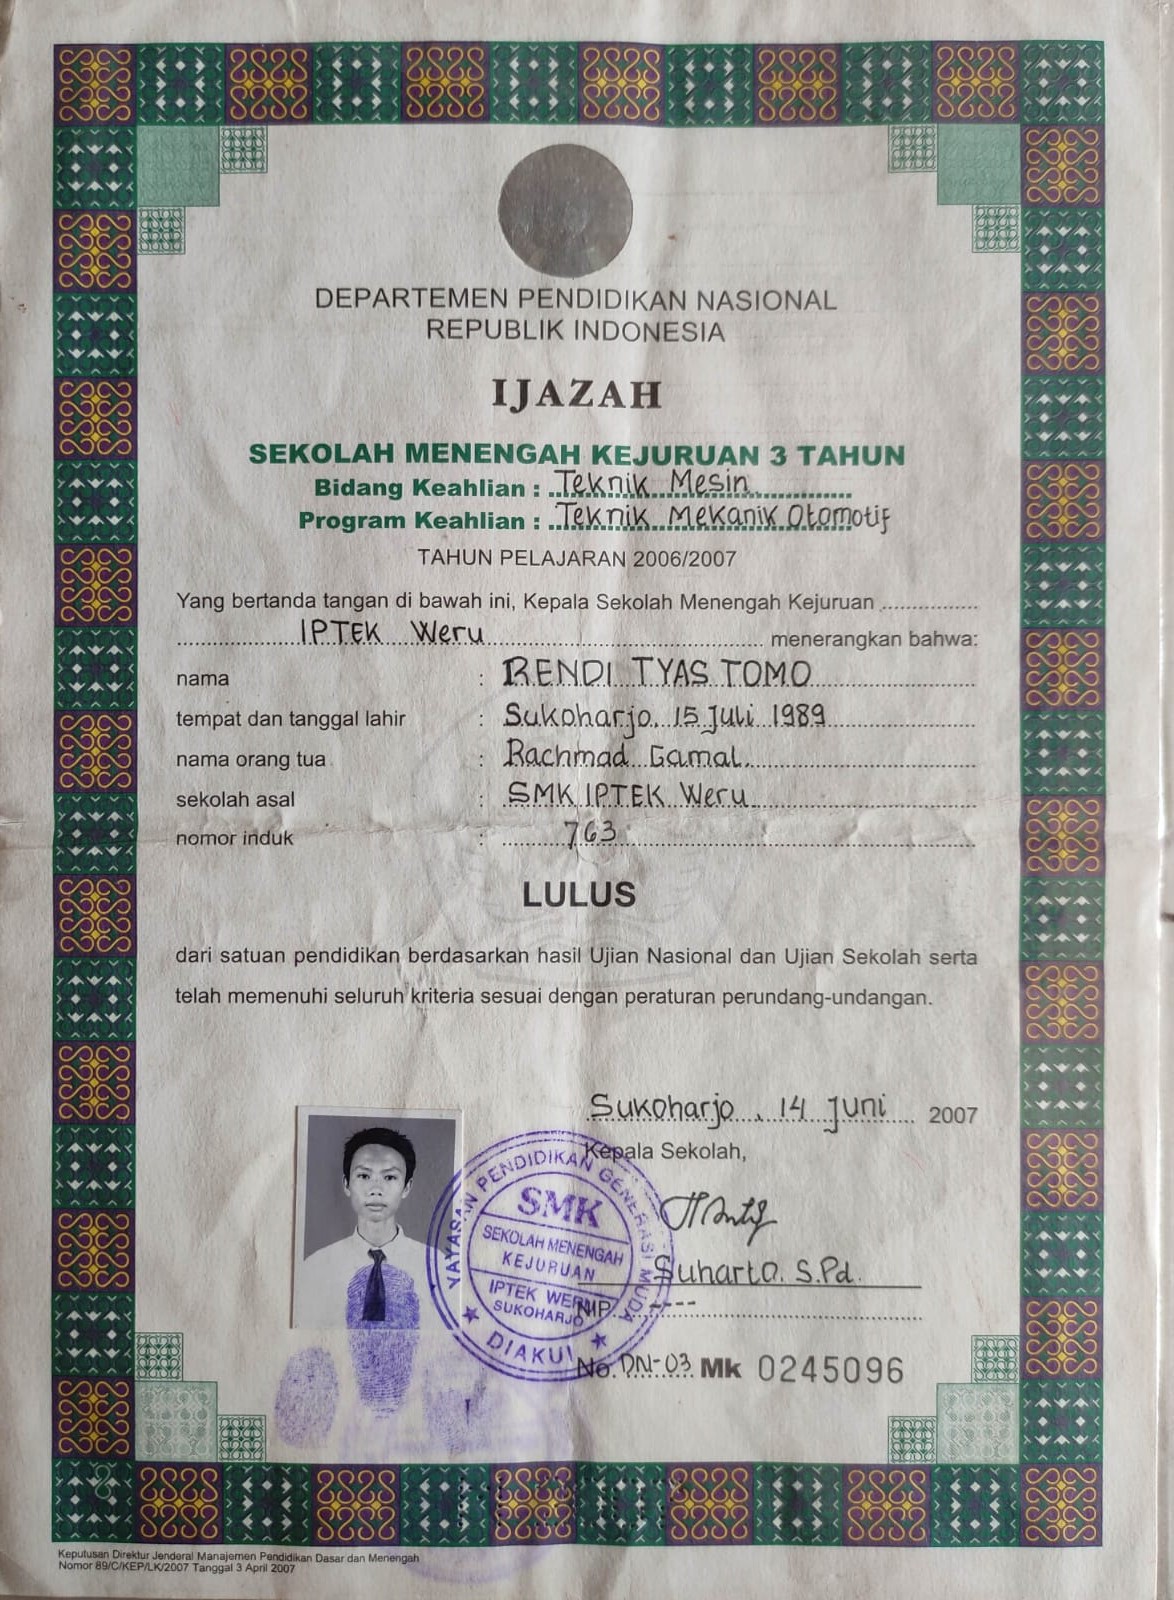 DEPARTEMEN PENDIDIKAN NASIONAL
REPUBLIK INDONESIA
IJAZAH
SEKOLAH MENENGAH KEJURUAN 3 TAHUN
Bidang Keahlian : Teknik Mesin
Program Keahlian : Teknik Mekanik Otomotif
TAHUN PELAJARAN 2006/2007
Yang bertanda tangan di bawah ini, Kepala Sekolah Menengah Kejuruan
IPTEK Weru menerangkan bahwa:
nama : RENDI TYAS TOMO
tempat dan tanggal lahir : Sukoharjo, 15 Juli 1989
nama orang tua : Rachmad Gamal.
sekolah asal : SMK IPTEK Weru
nomor induk : 763
LULUS
dari satuan pendidikan berdasarkan hasil Ujian Nasional dan Ujian Sekolah serta
telah memenuhi seluruh kriteria sesuai dengan peraturan perundang-undangan.
Sukoharjo, 14 Juni 2007
Kepala Sekolah,
YAYASAN PENDIDIKAN GENERASI MUDA
SMK
SEKOLAH MENENGAH
KEJURUAN
IPTEK WERU
SUKOHARJO
★ DIAKUI ★
Suharto. S.Pd.
NIP. ----
No. DN-03 Mk 0245096
Keputusan Direktur Jenderal Manajemen Pendidikan Dasar dan Menengah
Nomor 89/C/KEP/LK/2007 Tanggal 3 April 2007